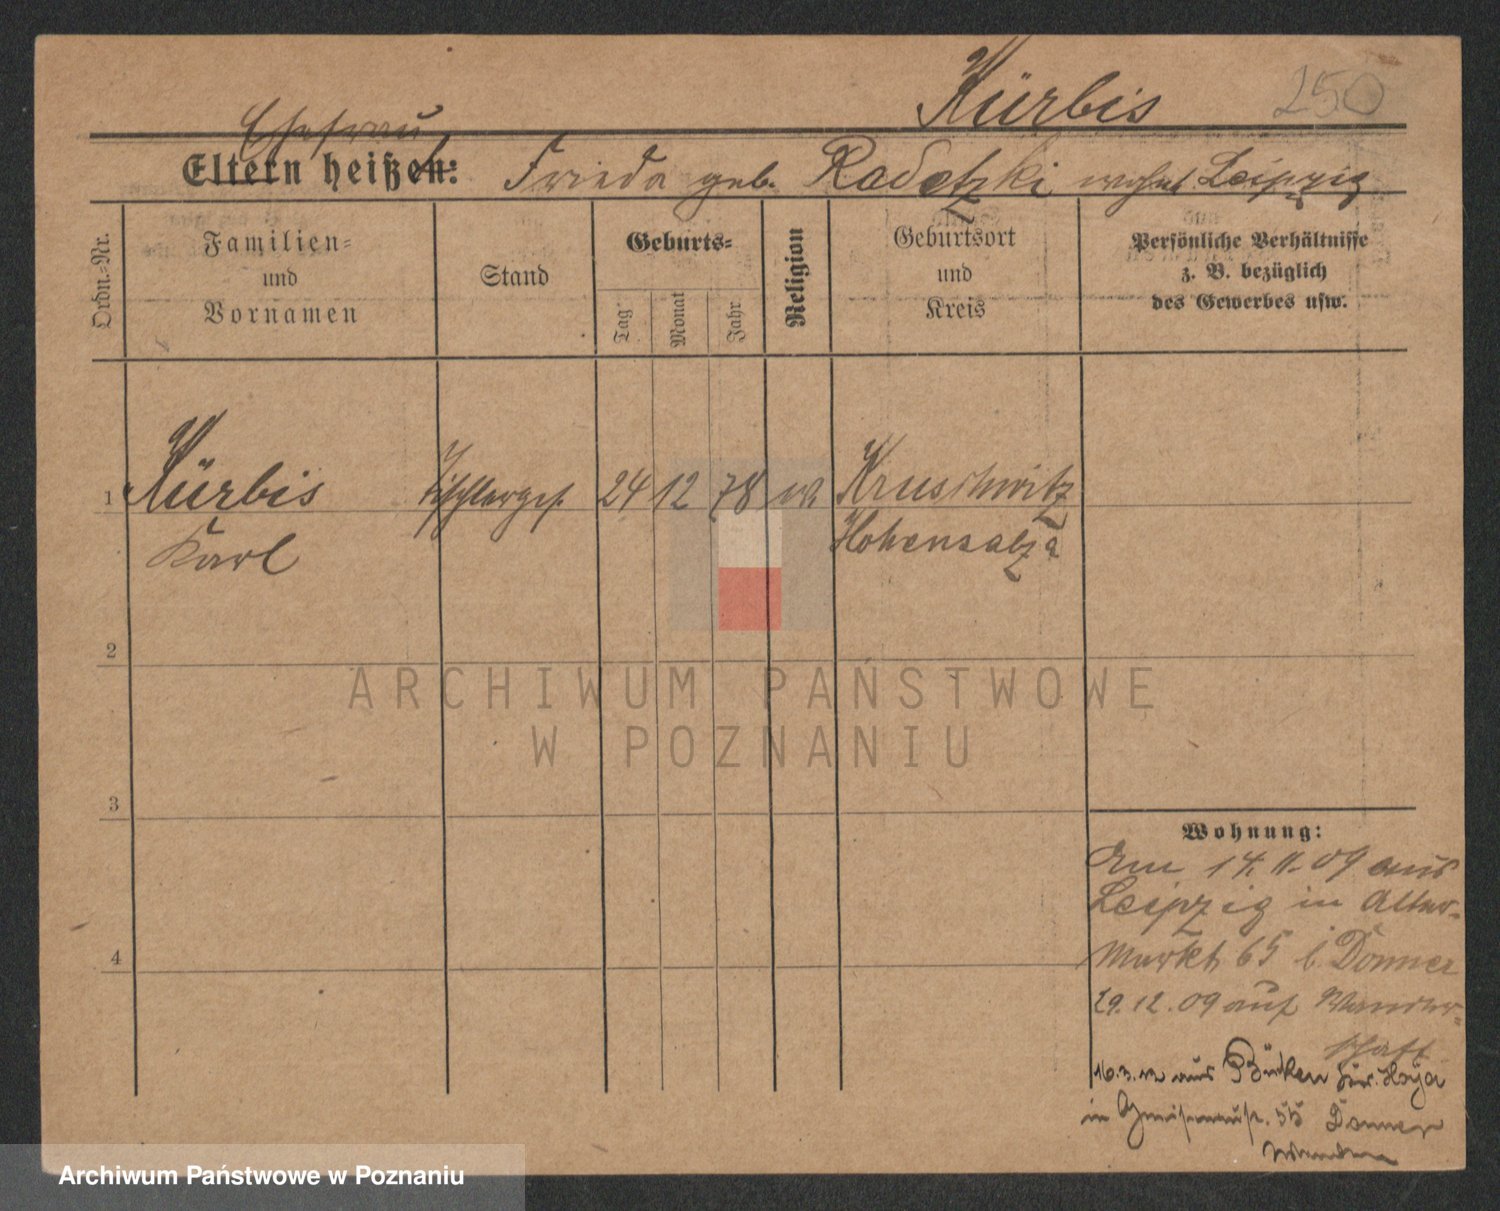 Kürbis 250
Ehefrau
Eltern heißen: Frieda geb. Radetzki wohnt Leipzig
Ordn.-Nr.
Familien-
und
Vornamen
Stand
Geburts-
Tag
Monat
Jahr
Religion
Geburtsort
und
Kreis
Persönliche Verhältnisse
z. B. bezüglich
des Gewerbes usw.
1 Kürbis Tischlerges. 24 12 78 ev. Kruschwitz
Karl Hohensalza
2
3
4
Wohnung:
Am 14.11.09 aus
Leipzig in Alter-
Markt 65 b. Donner
29.12.09 auf Wander-
schaft
16.3. aus Bücken Hoya
in Gneisenaustr. 55 Donner
ARCHIWUM PAŃSTWOWE
W POZNANIU
Archiwum Państwowe w Poznaniu